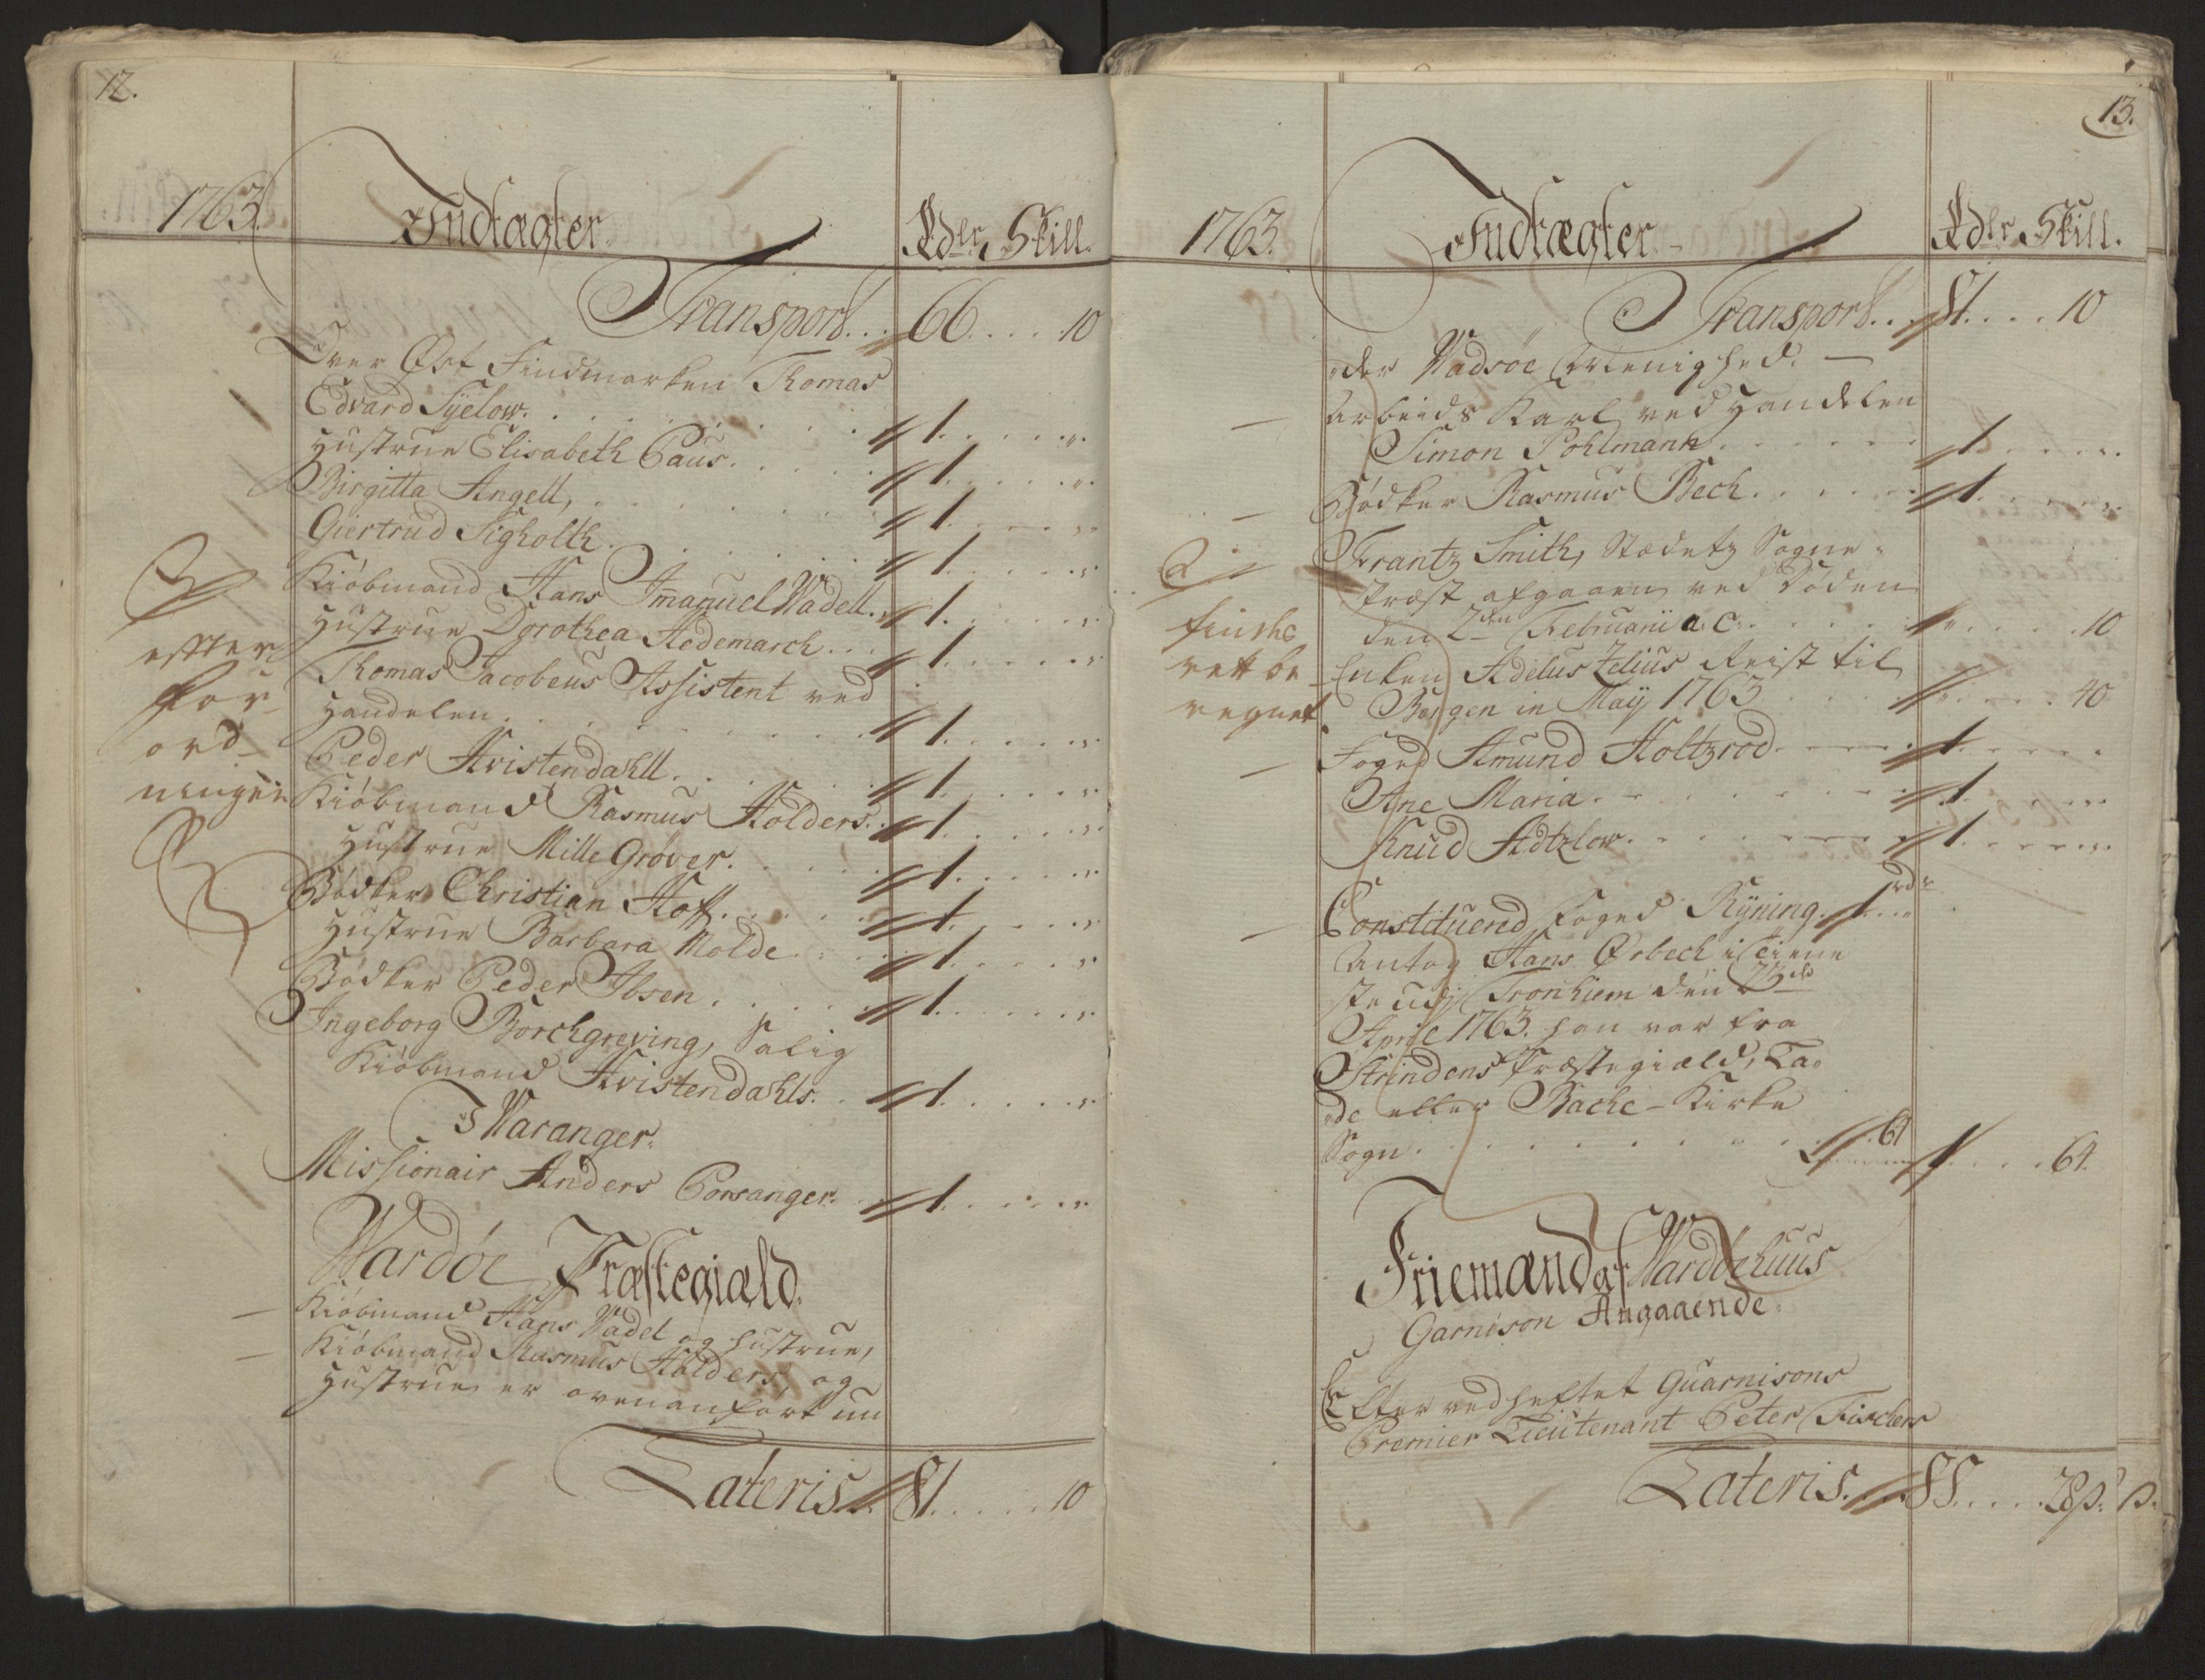 12.
1763. Indtægter. Rdlr. Skill.
Transport... 66....10
Over Øst Findmarken Thomas
Edvard Syelow. . . . . 1. . . . „.
Hustrue Elisabeth Paus. . . . . 1. . . . „.
Birgitta Angell, . . . . . 1. . . . „.
Giertrud Sigholth. . . . . 1. . . . „.
Kiøbmand Hans Jmanuel Wadell. 1. . . . „.
Hustrue Dorothea Hedemarch... 1. . . . „.
Thomas Jacobeus Assistent ved
Handelen. . . . . 1. . . . „.
Peder Hvistendahll. . . . . 1. . . . „.
Kiøbmand Rasmus Holders. . 1. . . . „.
Hustrue Mille Grøver. . . . . 1. . . . „.
Bødker Christian Hoff. . . . . 1. . . . „.
Hustrue Barbara Molde. . . . 1. . . . „.
Bødker Peder Ibsen. . . . . 1. . . . „.
Ingeborg Borchgreving, Salig
Kiøbmand Hvistendahls. . 1. . . . „.
I Waranger.
Missionair Anders Porsanger. . 1. . . . „.
Wardöe Præstegiæld.
— Kiøbmand Hans Wadel og Hustrue,
— Kiøbmand Rasmus Holders, og
Hustrue er ovenanført
Lateris.. 81....10
efter
for
ord-
ningen
13.
1763. Indtægter. Rdlr. Skill.
Transport... 81....10
der Wadsöe Menighed. —
— Arbeids Karl ved Handelen
Simon Pohlmann. . . . . 1. . . . „.
— Bødker Rasmus Bech. . . . . 1. . . . „.
Frantz Smith, Stædetz Sogne-
Præst afgaaen ved Døden
den 2den Februarii a. c. . . . . „. . . . 10
Enken Adelus Zelius Reist til
Bergen in Maÿ 1763 . . . „. . . . 40
— Foged Amund Holtzrod. . . . 1. . . .
Ane Maria. . . . . 1. . . . „.
Knud Adtzlow. . . . . 1. . . . „.
— Constituered Foged Ryning. 1rdr
Antog Hans Ørbech i tiene
ste udj Tronhiem den
April 1763. han var fra
Strindens Præstegiæld, La-
de eller Bache-Kirke
Sogn. . . . . 64 1. . . . 64.
findes
rett be
regnet
Friemænd af Wardöehuus
Garnison Angaaende.
Efter vedheftet Guarnisons
Premier Lieutenant Peter Fischers
Lateris... 88....28